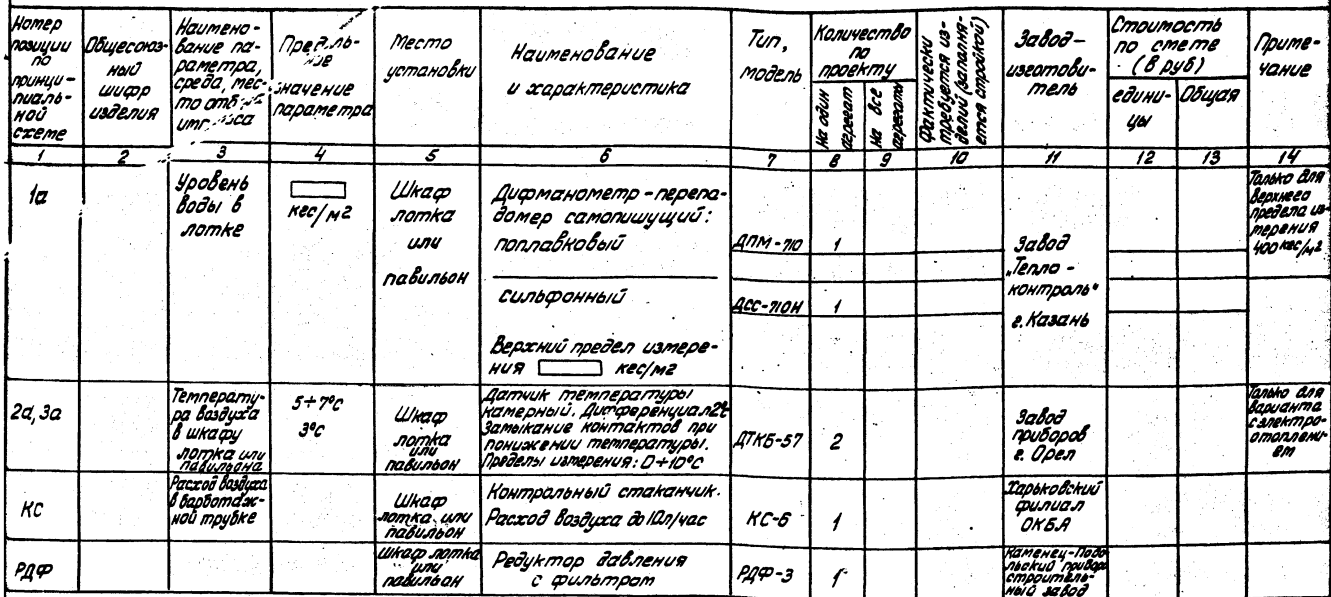 Номер
позиции
по
принци-
пиаль-
ной
схеме
Общесоюз-
ный
шифр
изделия
Наимено-
вание па-
раметра,
среда, мес-
то отбора
импульса
значение
параметра
Место
установки
Наименование
и характеристика
Тип,
модель
Количество
по
проекту
на один
агрегат
на все
агрегаты
Фактически
требуется из-
делий (заполня-
ется стройкой)
Завод-
изготови-
тель
Стоимость
по смете
(в руб)
едини-
цы
Общая
Приме-
чание
1 2 3 4 5 6 7 8 9 10 11 12 13 14
1а
Уровень
воды в
лотке
кгс/м2
Шкаф
лотка
или
павильон
Дифманометр-перепа-
домер самопишущий:
поплавковый
сильфонный
Верхний предел измере-
ния кгс/м2
ДПМ-710
1
ДСС-710Н
1
Завод
„Тепло-
контроль"
г. Казань
Только для
верхнего
предела из-
мерения
400 кгс/м2
2а, 3а
Температу-
ра воздуха
в шкафу
лотка или
павильона
5÷7°С
3°С
Шкаф
лотка
или
павильон
Датчик температуры
камерный. Дифференциал 2°С
Замыкание контактов при
понижении температуры.
Пределы измерения: 0÷10°С
ДТКБ-57
2
Завод
приборов
г. Орел
Только для
варианта
с электро-
отоплени-
ем
КС
Расход воздуха
в барботаж-
ной трубке
Шкаф
лотка или
павильон
Контрольный стаканчик.
Расход воздуха до 10л/час
КС-6
1
Харьковский
филиал
ОКБА
РДФ
Шкаф лотка
или
павильон
Редуктор давления
с фильтром
РДФ-3
1
Каменец-Подо-
льский приборо
строитель-
ный завод